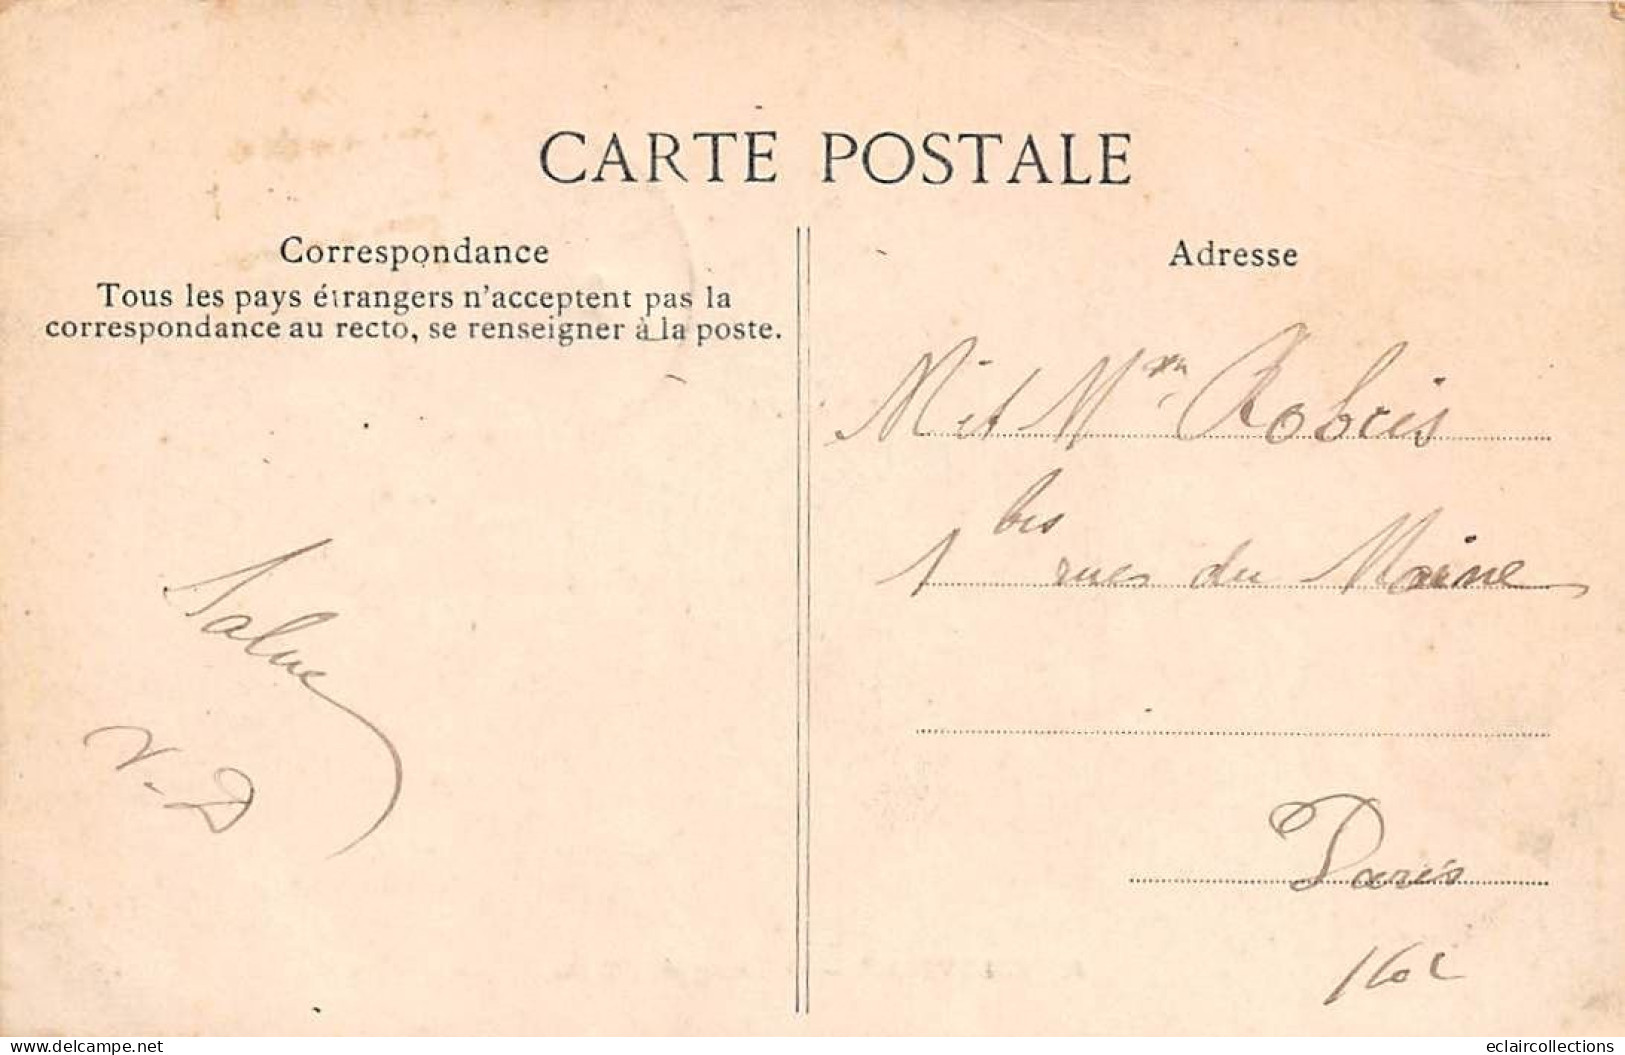 CARTE POSTALE
Correspondance
Tous les pays étrangers n'acceptent pas la
correspondance au recto, se renseigner à la poste.
Salue
V. D
Adresse
M et Mme Robies
1 bis rues du Maine
Paris
delcampe.net
eclaircollections